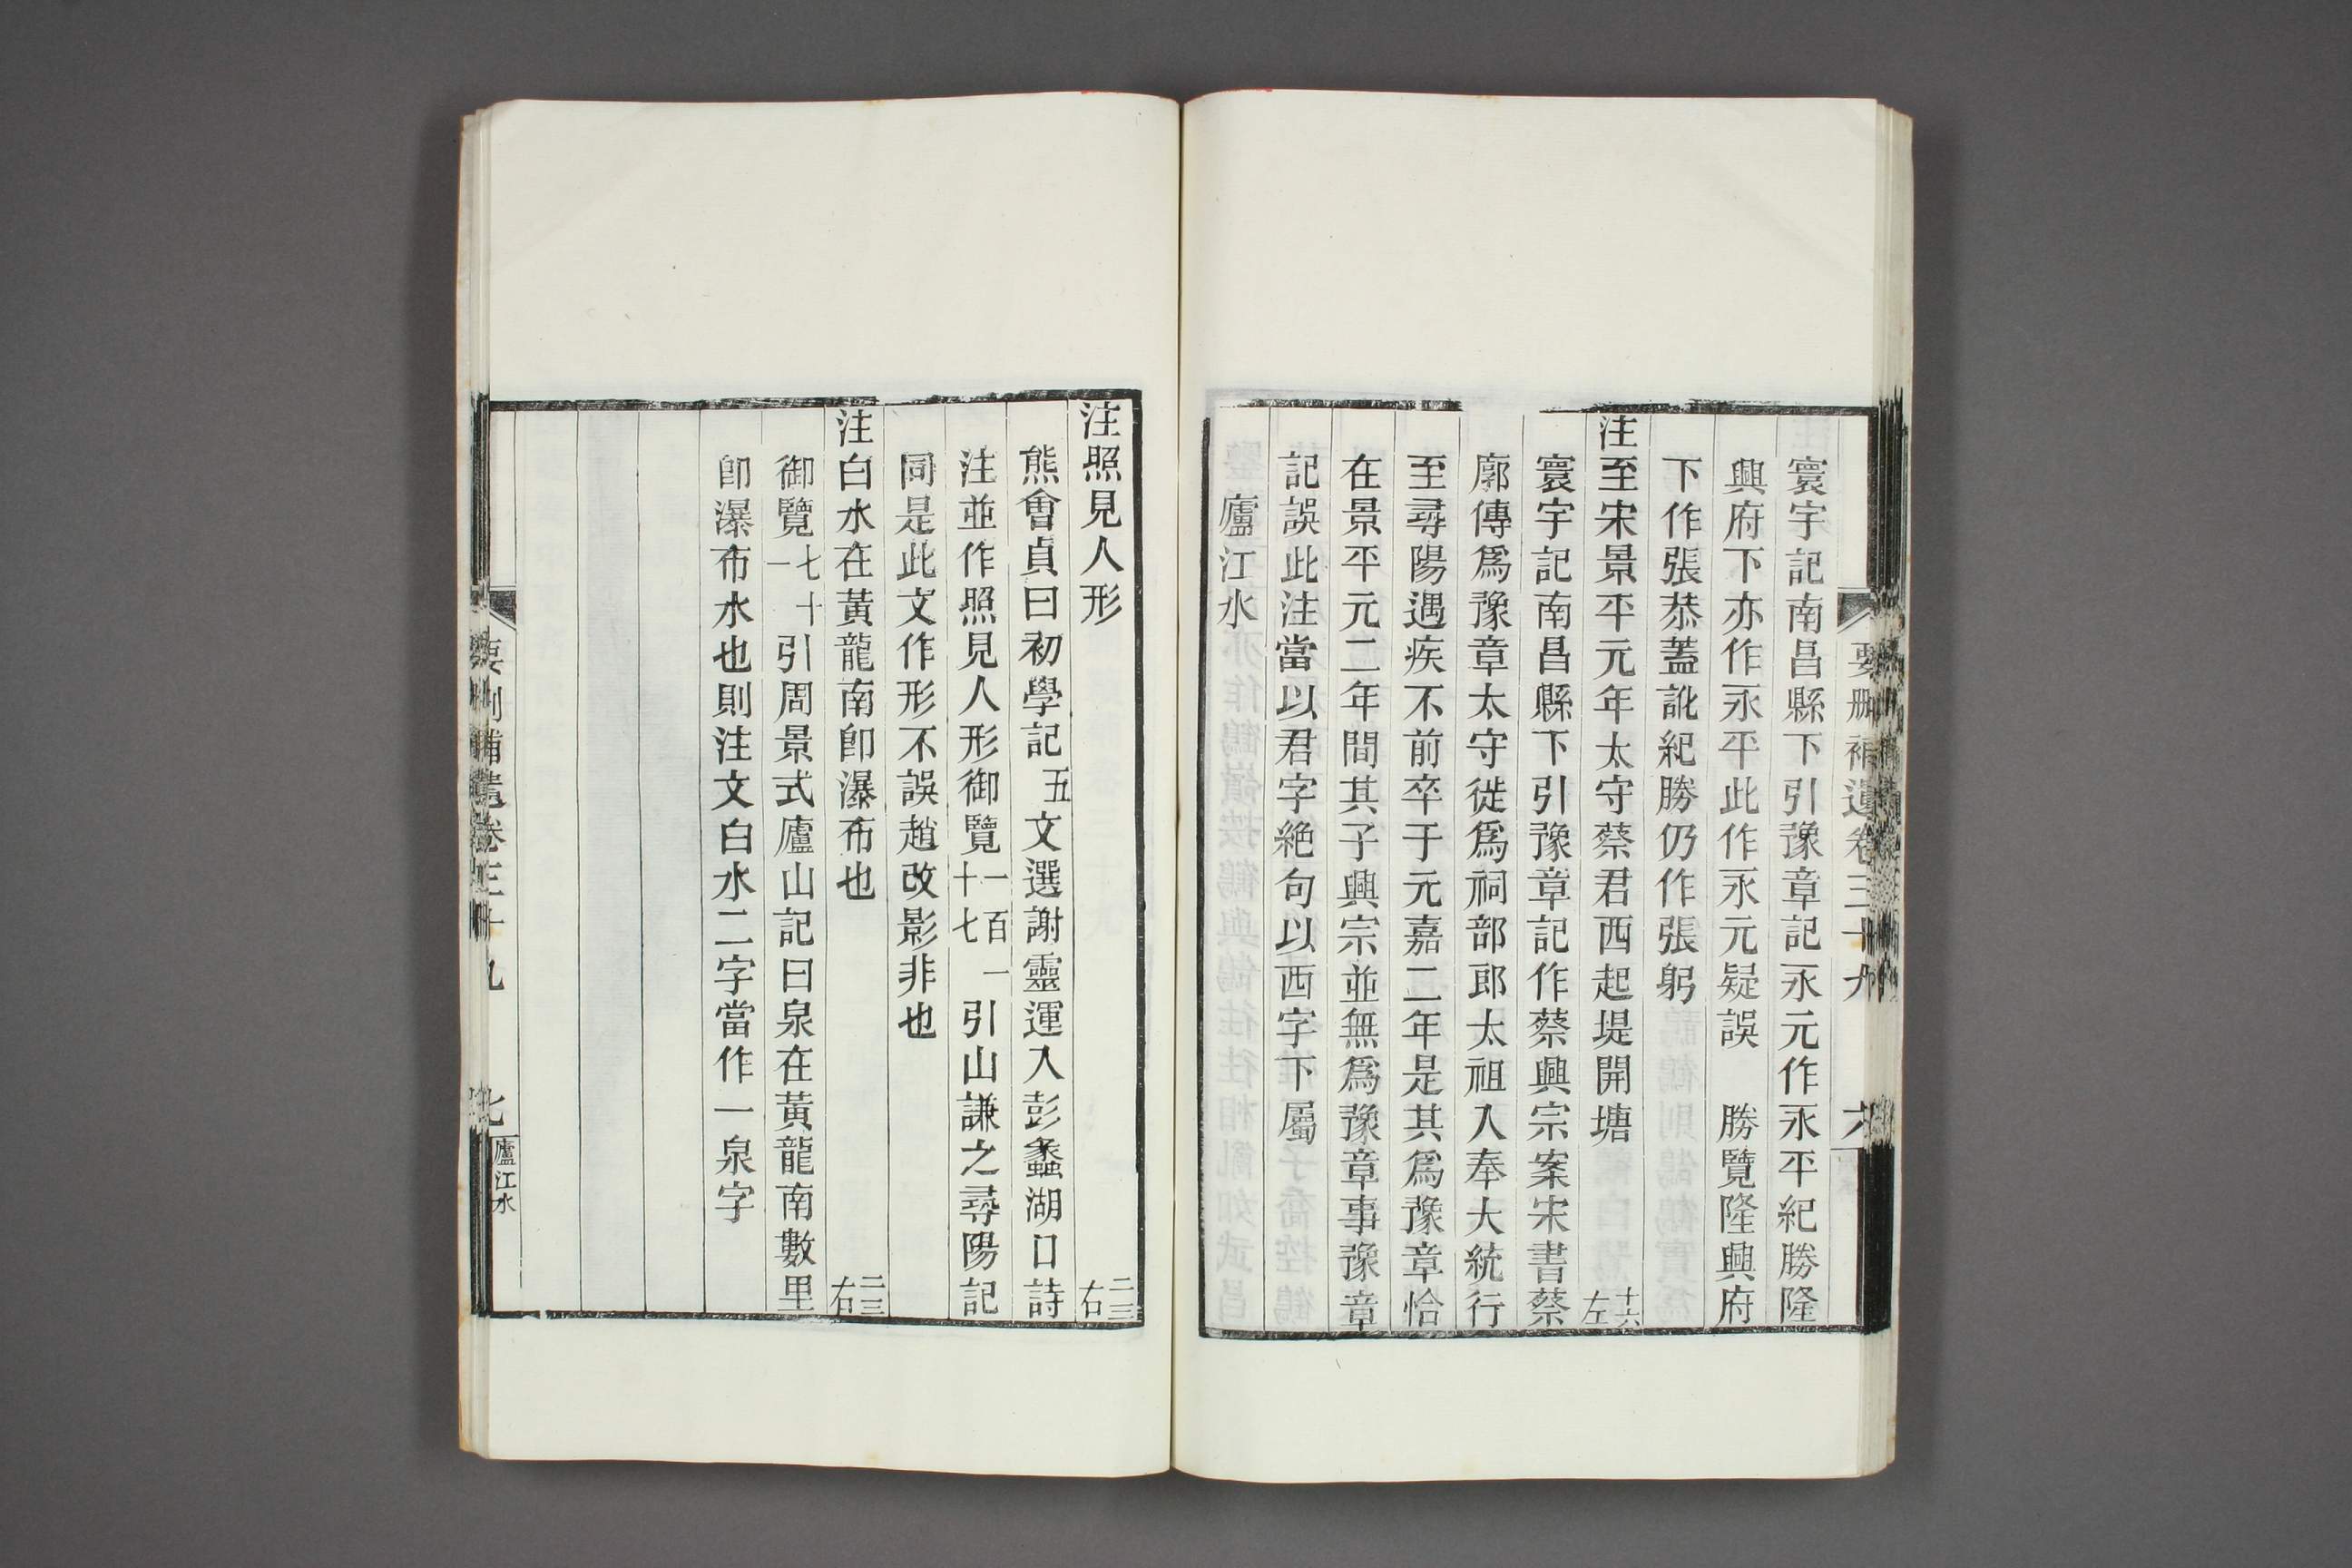 寰宇記南昌縣下引豫章記永元作永平紀勝隆
興府下亦作永平此作永元疑誤　勝覽隆興府
下作張恭蓋訛紀勝仍作張躬
注至宋景平元年太守蔡君西起堤開塘　十六左
寰宇記南昌縣下引豫章記作蔡興宗案宋書蔡
廓傳爲豫章太守徙爲祠部郎太祖入奉大統行
至尋陽遇疾不前卒于元嘉二年是其爲豫章恰
在景平元二年間其子興宗並無爲豫章事豫章
記誤此注當以君字絶句以西字下屬
廬江水
注照見人形　二三右
熊會貞曰初學記五文選謝靈運入彭蠡湖口詩
注並作照見人形御覽一百一十七引山謙之尋陽記
同是此文作形不誤趙改影非也
注白水在黃龍南卽瀑布也　二三右
御覽七十一引周景式廬山記曰泉在黃龍南數里
卽瀑布水也則注文白水二字當作一泉字
要刪補遺卷三十九　七　廬江水